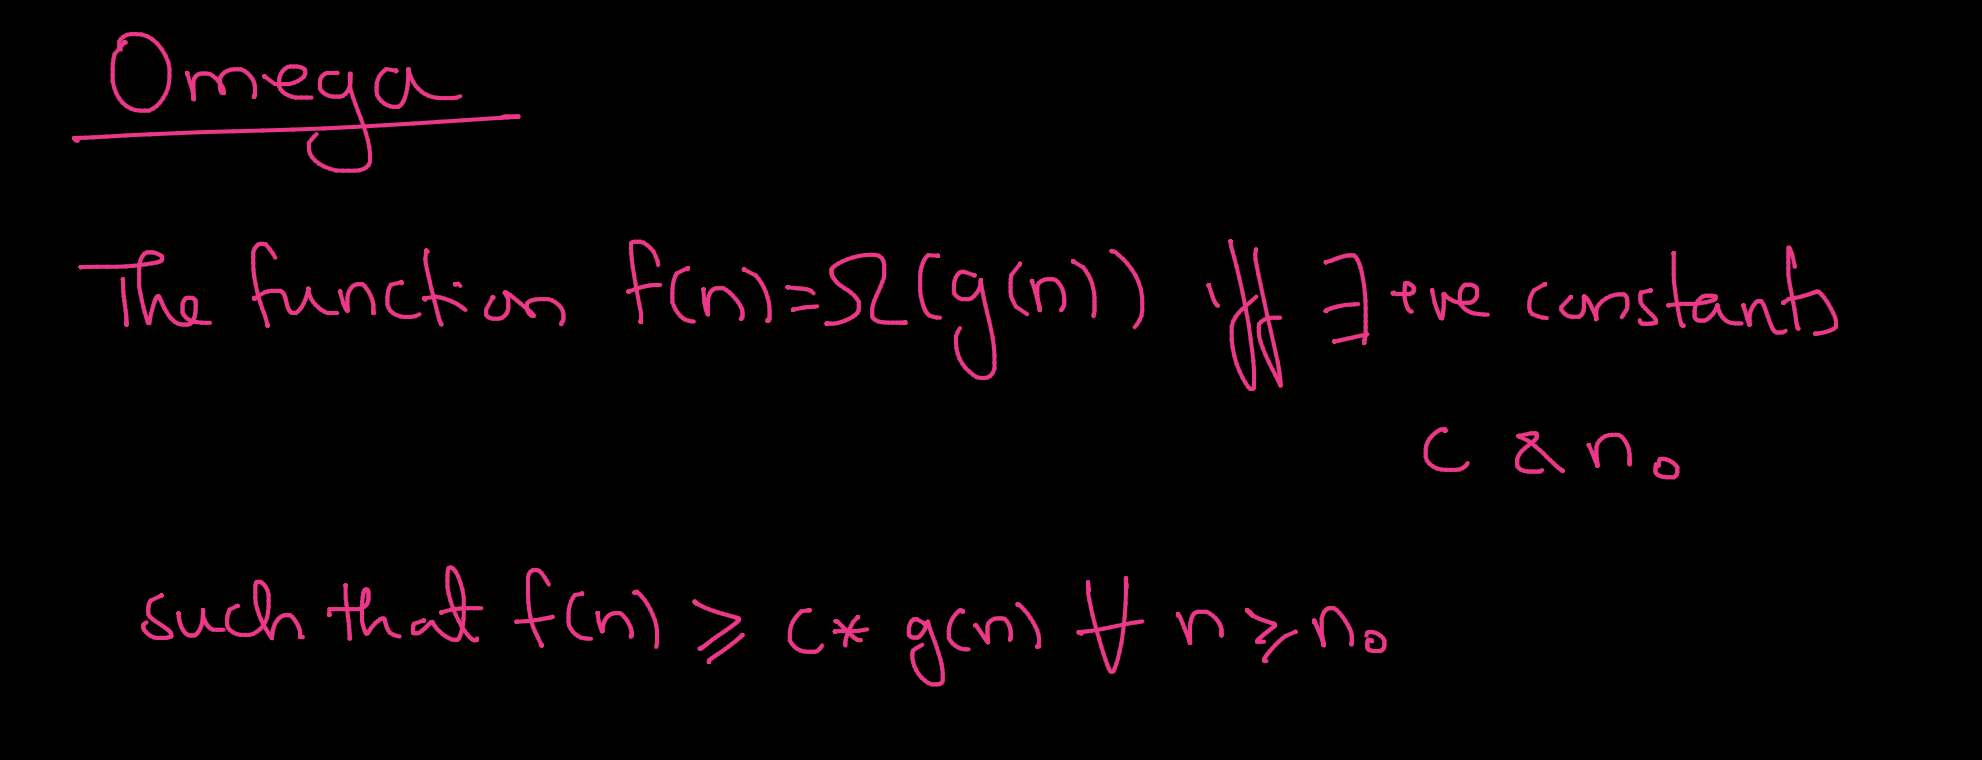 Omega
The function f(n)=Ω(g(n)) iff ∃ +ve constants
c & n₀
such that f(n) ≥ c* g(n) ∀ n≥n₀